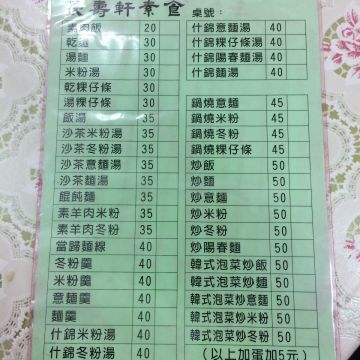 長壽軒素食
桌號：
素肉飯 20
乾麵 30
湯麵 30
米粉湯 30
乾粿仔條 30
湯粿仔條 30
飯湯 35
沙茶米粉湯 35
沙茶冬粉湯 35
沙茶意麵湯 35
沙茶麵湯 35
餛飩麵 35
素羊肉米粉 35
素羊肉冬粉 35
當歸麵線 40
冬粉羹 40
米粉羹 40
意麵羹 40
麵羹 40
什錦米粉湯 40
什錦冬粉湯 40
什錦意麵湯 40
什錦粿仔條湯 40
什錦陽春麵湯 40
什錦麵湯 40
鍋燒意麵 45
鍋燒米粉 45
鍋燒冬粉 45
鍋燒粿仔條 45
炒飯 50
炒麵 50
炒意麵 50
炒米粉 50
炒冬粉 50
炒陽春麵 50
韓式泡菜炒飯 50
韓式泡菜炒麵 50
韓式泡菜炒意麵 50
韓式泡菜炒米粉 50
韓式泡菜炒冬粉 50
(以上加蛋加5元)